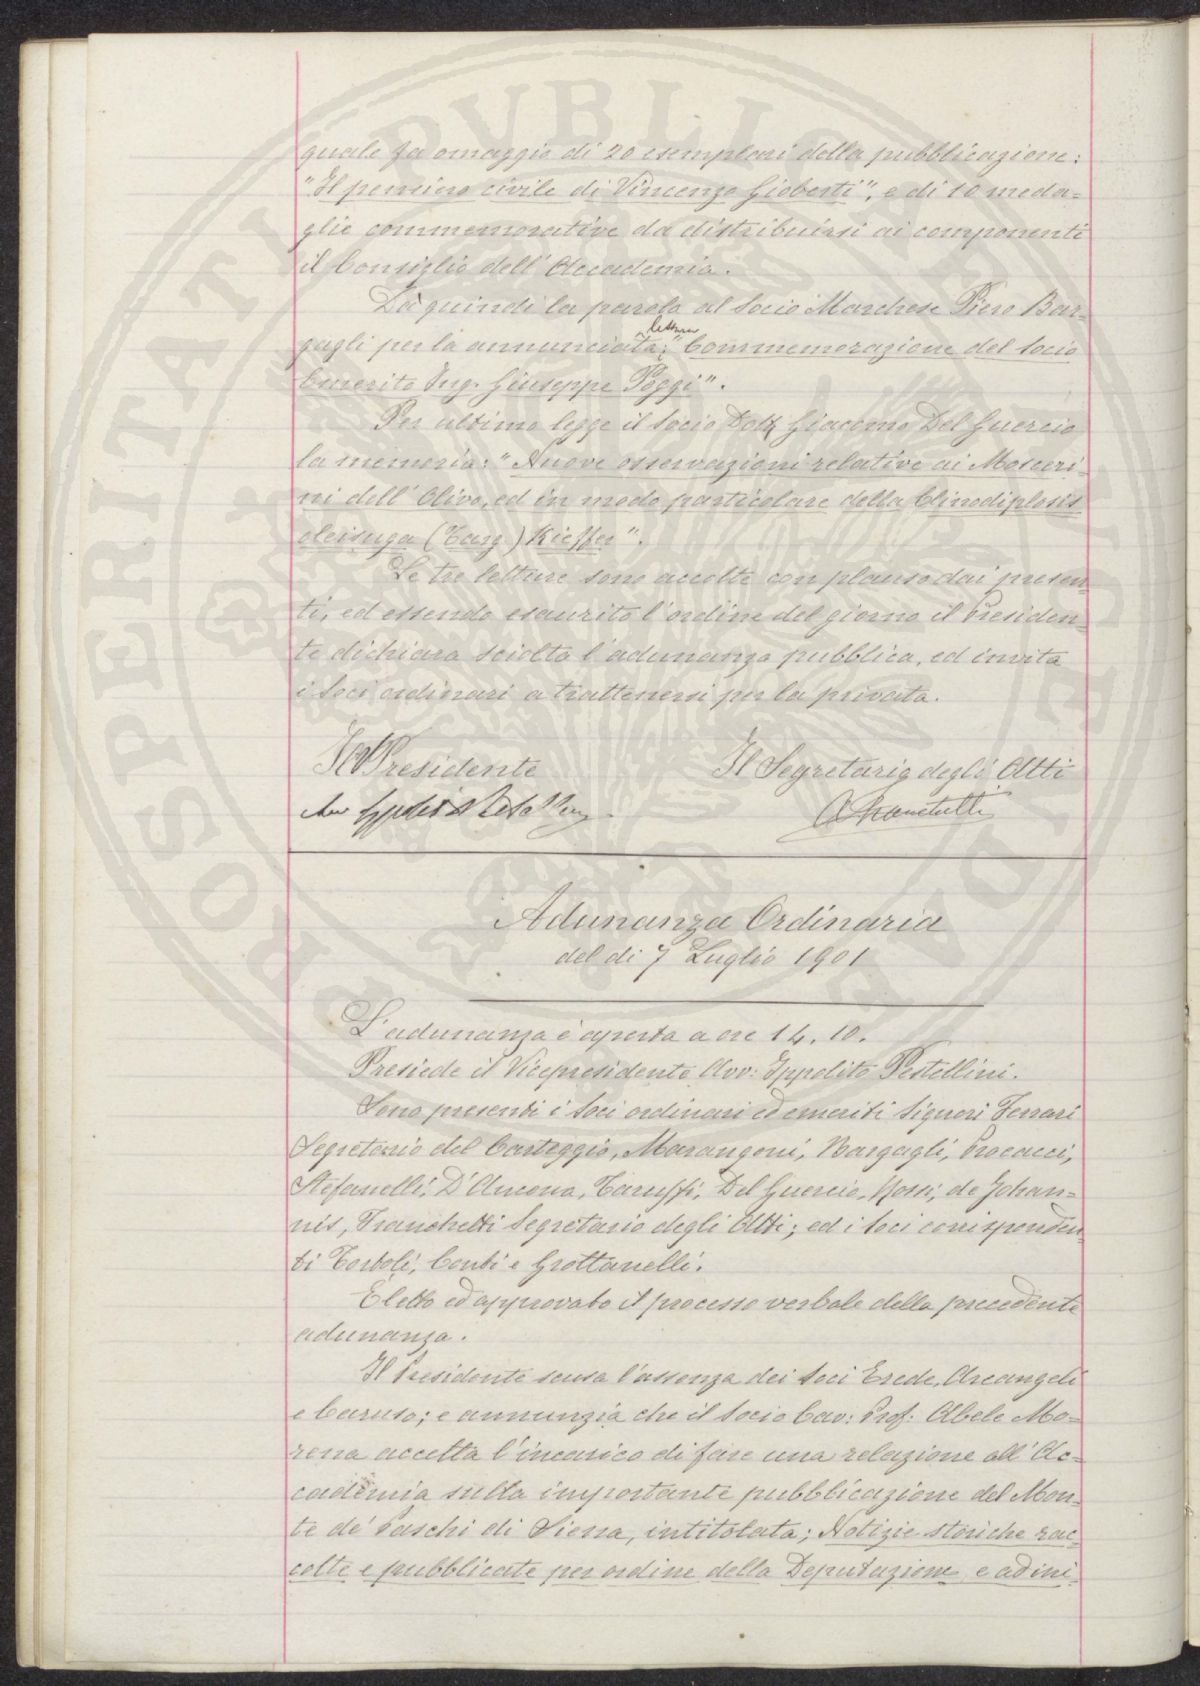 quale fa omaggio di 20 esemplari della pubblicazione:
"Il pensiero civile di Vincenzo Gioberti", e di 10 meda=
glie commemorative da distribuirsi ai componenti
il Consiglio dell'Accademia.
Dà quindi la parola al Socio Marchese Piero Bar=
gagli per la annunciata lettura: "Commemorazione del Socio
Emerito Ing. Giuseppe Poggi".
Per ultimo legge il Socio Dott. Giacomo Del Guercio
la memoria: "Nuove osservazioni relative ai Mosceri=
ni dell'Olivo, ed in modo particolare della Clinodiplosis
oleisuga (Targ.) Kieffer".
Le tre letture sono accolte con plauso dai presen=
ti, ed essendo esaurito l'ordine del giorno il Presiden=
te dichiara sciolta l'adunanza pubblica, ed invita
i Soci ordinari a trattenersi per la privata.
Il Presidente Il Segretario degli Atti
A Franchetti
Adunanza Ordinaria
del dì 7 Luglio 1901
L'adunanza è aperta a ore 14,10.
Presiede il Vicepresidente Avv: Ippolito Pestellini.
Sono presenti i Soci ordinari ed emeriti Signori Ferrari
Segretario del Carteggio, Marangoni, Bargagli, Procacci,
Stefanelli, D'Ancona, Taruffi, Del Guercio, Rossi, de Johan=
nis, Franchetti Segretario degli Atti; ed i Soci corrisponden=
ti Tortoli, Conti e Grottanelli.
È letto ed approvato il processo verbale della precedente
adunanza.
Il Presidente scusa l'assenza dei Soci Erede, Arcangeli
e Caruso; e annunzia che il Socio Cav: Prof: Abele Mo=
rena accetta l'incarico di fare una relazione all'Ac=
cademia sulla importante pubblicazione del Mon=
te de' Paschi di Siena, intitolata; Notizie storiche rac=
colte e pubblicate per ordine della Deputazione, e ad ini=
PROSPERITATI PVBLICAE